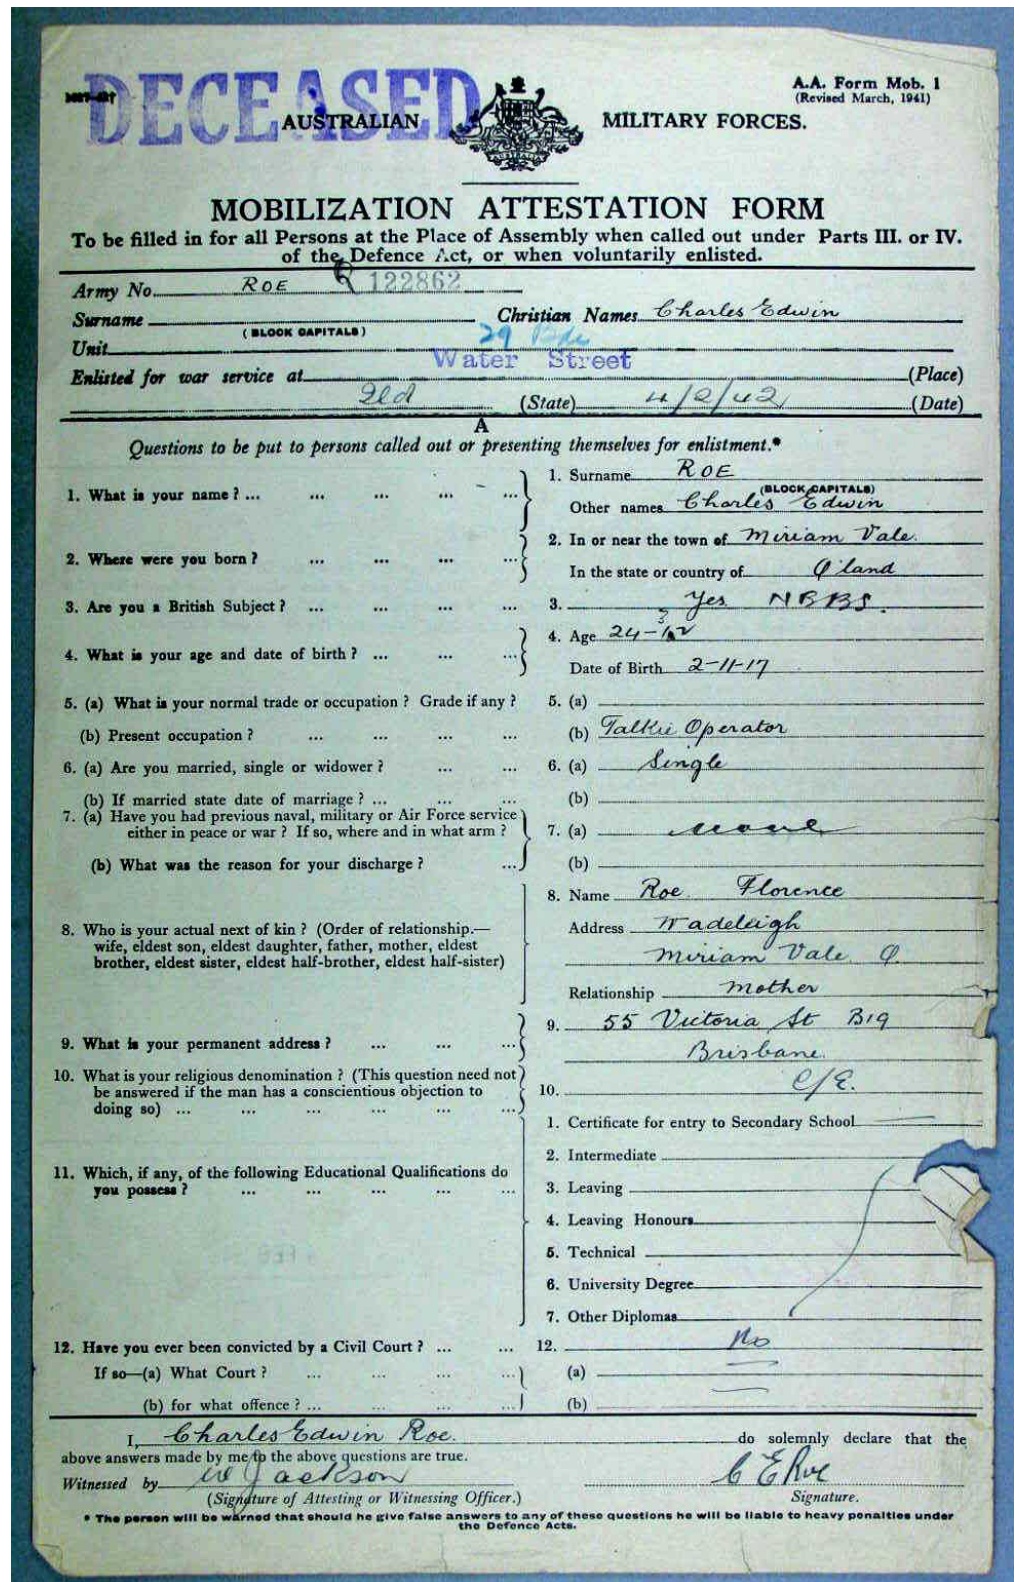 DECEASED
A.A. Form Mob. 1
(Revised March, 1941)
AUSTRALIAN MILITARY FORCES.
AUSTRALIA
MOBILIZATION ATTESTATION FORM
To be filled in for all Persons at the Place of Assembly when called out under Parts III. or IV.
of the Defence Act, or when voluntarily enlisted.
Army No. ROE Q 122862
Surname Christian Names Charles Edwin
(BLOCK CAPITALS) 29 Bde
Unit
Water Street
Enlisted for war service at (Place)
Qld (State) 4/2/42 (Date)
A
Questions to be put to persons called out or presenting themselves for enlistment.*
1. What is your name? ... ... ... ... ...
1. Surname ROE
(BLOCK CAPITALS)
Other names Charles Edwin
2. Where were you born? ... ... ... ...
2. In or near the town of Miriam Vale.
In the state or country of Q'land
3. Are you a British Subject? ... ... ... ...
3. Yes NBBS.
4. What is your age and date of birth? ... ... ...
4. Age 24-3/12
Date of Birth 2-11-17
5. (a) What is your normal trade or occupation? Grade if any?
5. (a)
(b) Present occupation? ... ... ... ...
(b) Talkie Operator
6. (a) Are you married, single or widower? ... ...
6. (a) Single
(b) If married state date of marriage? ... ... ...
(b)
7. (a) Have you had previous naval, military or Air Force service
either in peace or war? If so, where and in what arm?
7. (a) none
(b) What was the reason for your discharge? ...
(b)
8. Who is your actual next of kin? (Order of relationship.—
wife, eldest son, eldest daughter, father, mother, eldest
brother, eldest sister, eldest half-brother, eldest half-sister)
8. Name Roe. Florence
Address Wadeleigh
Miriam Vale. Q.
Relationship Mother
9. What is your permanent address? ... ... ...
9. 55 Victoria St B19
Brisbane.
10. What is your religious denomination? (This question need not
be answered if the man has a conscientious objection to
doing so) ... ... ... ... ... ...
10. C/E.
11. Which, if any, of the following Educational Qualifications do
you possess? ... ... ... ... ...
1. Certificate for entry to Secondary School
2. Intermediate
3. Leaving
4. Leaving Honours
5. Technical
6. University Degree
7. Other Diplomas
12. Have you ever been convicted by a Civil Court? ... ...
12. No
If so—(a) What Court? ... ... ... ...
(a)
(b) for what offence? ... ... ... ...
(b)
I, Charles Edwin Roe. do solemnly declare that the
above answers made by me to the above questions are true.
Witnessed by W Jackson C E Roe
(Signature of Attesting or Witnessing Officer.) Signature.
* The person will be warned that should he give false answers to any of these questions he will be liable to heavy penalties under
the Defence Acts.